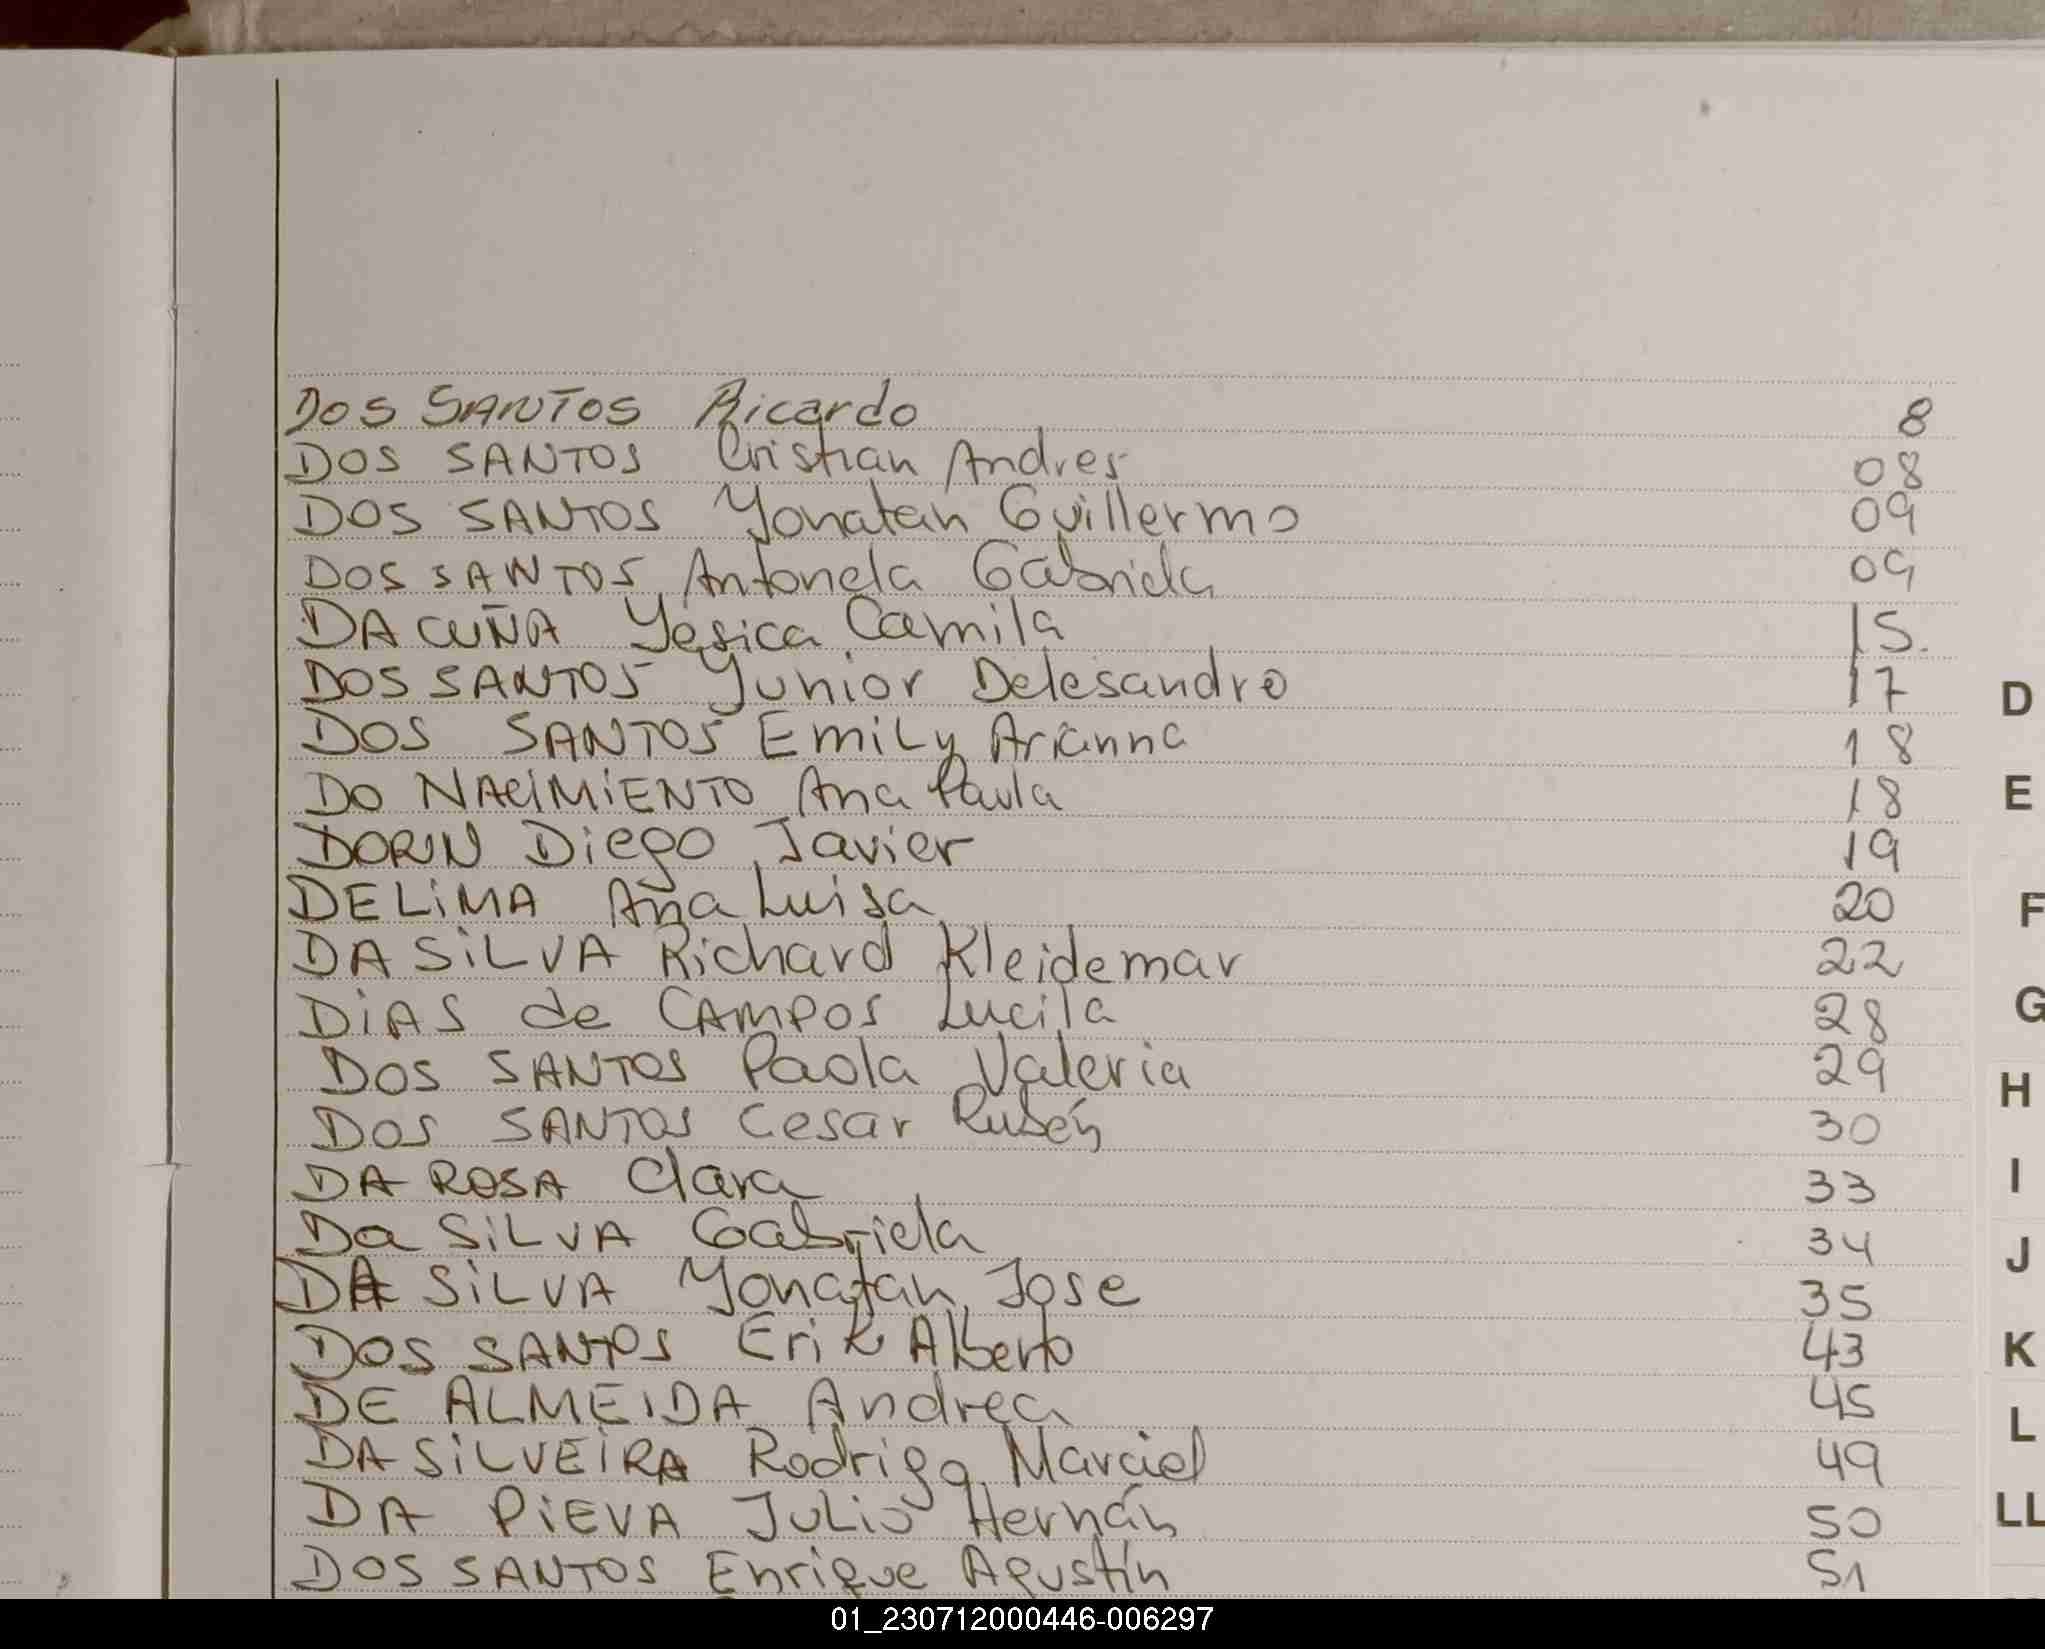 DOS SANTOS Ricardo 8
DOS SANTOS Cristian Andres 08
DOS SANTOS Yonatan Guillermo 09
DOS SANTOS Antonela Gabriela 09
DA CUÑA Yesica Camila 15.
DOS SANTOS Yunior Delesandro 17
D
DOS SANTOS EmiLy Arianna 18
DO NACIMIENTO Ana Paula 18
E
DORIN Diego Javier 19
DELIMA Ana Luisa 20
F
DA SILVA Richard Kleidemar 22
DIAS de CAMPOS Lucila 28
G
DOS SANTOS Paola Valeria 29
H
DOS SANTOS Cesar Rubén 30
DA ROSA Clara 33
I
Da SILVA Gabriela 34
J
DA SILVA Yonatan Jose 35
DOS SANTOS Erik Alberto 43
K
DE ALMEIDA Andrea 45
L
DA SILVEIRA Rodrigo Marciel 49
DA PIEVA JuLio Hernán 50
LL
DOS SANTOS Enrique Agustín 51
01_230712000446-006297